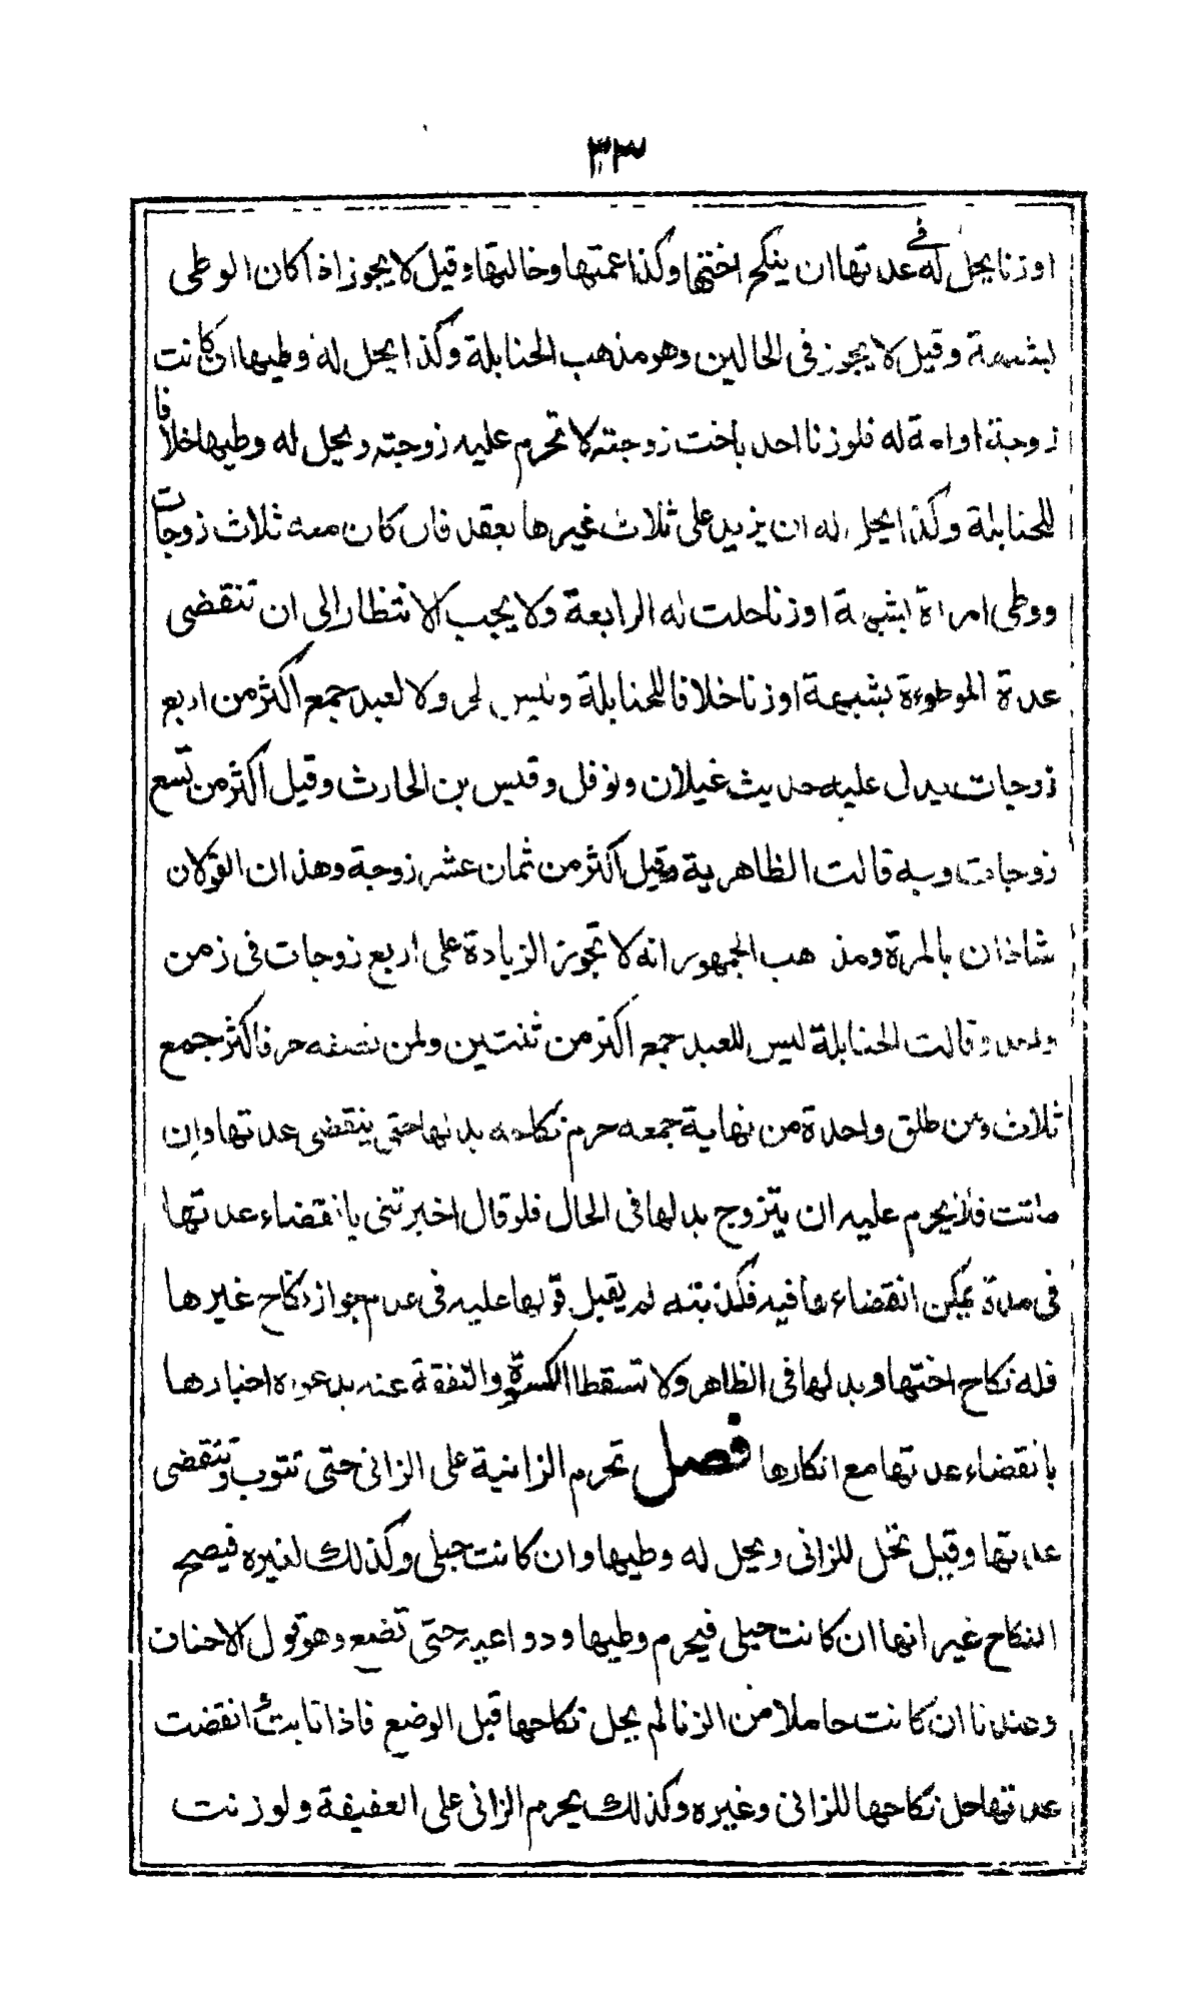 ٣٣
او زنا يحل له في عدتها ان ينكح اختها وكذا عمتها وخالتها وقيل لا يجوز اذا كان الوطى
بشبهة وقيل لا يجوز في الحالين وهو مذهب الحنابلة وكذا يحل له وطيها ان كانت
زوجة او امة له فلو زنا احد باخت زوجته لا تحرم عليه زوجته ويحل له وطيها خلافا
للحنابلة وكذا يحل له ان يزيد على ثلاث غيرها بعقد فان كان معه ثلاث زوجات
ووطى امراة بشبهة او زنا حلت له الرابعة ولا يجب الانتظار الى ان تنقضى
عدة الموطوءة بشبهة او زنا خلافا للحنابلة وليس لحر ولا لعبد جمع اكثر من اربع
زوجات يدل عليه حديث غيلان ونوفل وقيس بن الحارث وقيل اكثر من تسع
زوجات وبه قالت الظاهرية وقيل اكثر من ثمان عشر زوجة وهذان القولان
شاذان بالمرة ومذهب الجمهور انه لا تجوز الزيادة على اربع زوجات في زمن
واحد وقالت الحنابلة ليس للعبد جمع اكثر من ثنتين ولمن نصفه حر فاكثر جمع
ثلاث ومن طلق واحدة من نهاية جمعه حرم نكاحه بدلها حتى ينقضى عدتها وان
ماتت فلا يحرم عليه ان يتزوج بدلها في الحال فلو قال اخبرتنى بانقضاء عدتها
في مدة يمكن انقضاءها فيه فكذبته لم يقبل قولها عليه في عدم جواز نكاح غيرها
فله نكاح اختها وبدلها في الظاهر ولا تسقط الكسوة والنفقة عنه بدعواه اخبارها
بانقضاء عدتها مع انكارها فصل تحرم الزانية على الزانى حتى تتوب وتنقضى
عدتها وقيل تحل للزانى ويحل له وطيها وان كانت حبلى وكذلك لغيره فيصح
النكاح غير انها ان كانت حبلى فيحرم وطيها ودواعيه حتى تضع وهو قول الاحناف
وعندنا ان كانت حاملا من الزنا لم يحل نكاحها قبل الوضع فاذا تابت وانقضت
عدتها حل نكاحها للزانى وغيره وكذلك يحرم الزانى على العفيفة ولو زنت